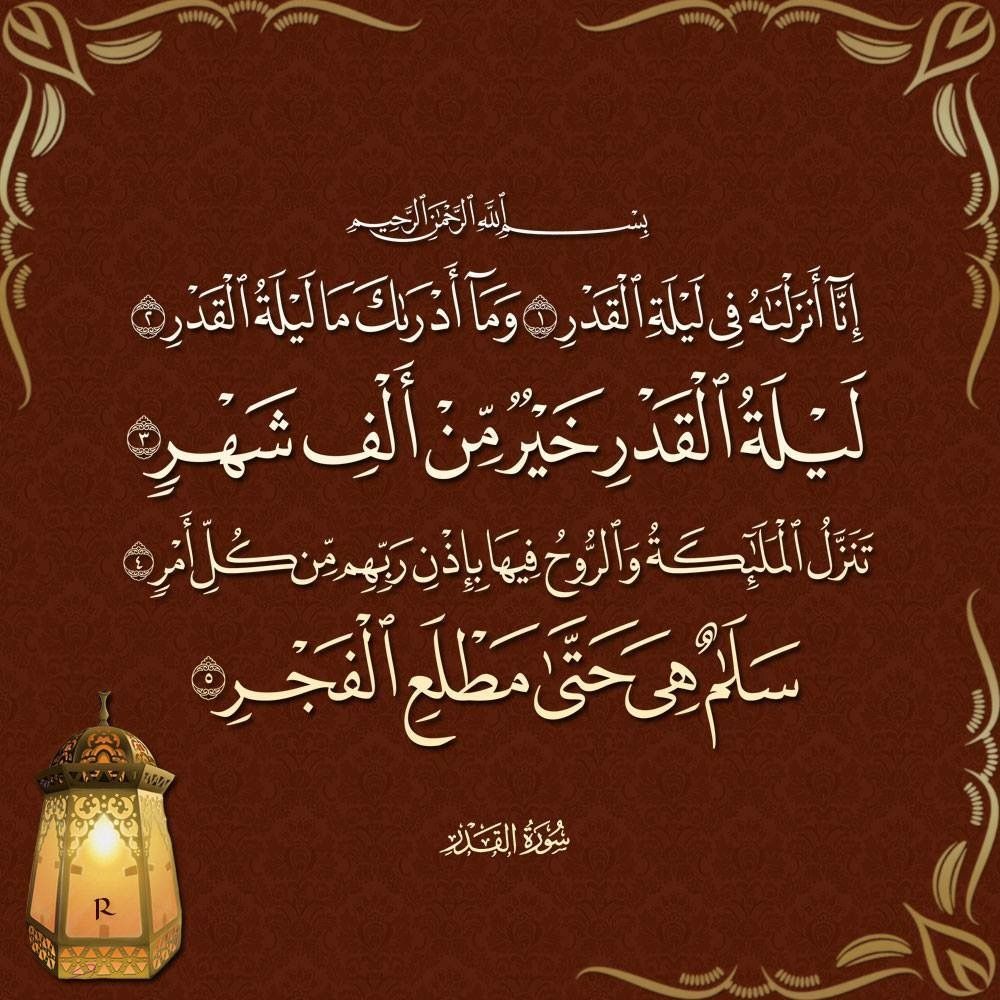 بِسْمِ ٱللَّهِ ٱلرَّحْمَٰنِ ٱلرَّحِيمِ
إِنَّآ أَنزَلْنَٰهُ فِى لَيْلَةِ ٱلْقَدْرِ ١ وَمَآ أَدْرَىٰكَ مَا لَيْلَةُ ٱلْقَدْرِ ٢
لَيْلَةُ ٱلْقَدْرِ خَيْرٌ مِّنْ أَلْفِ شَهْرٍ ٣
تَنَزَّلُ ٱلْمَلَٰٓئِكَةُ وَٱلرُّوحُ فِيهَا بِإِذْنِ رَبِّهِم مِّن كُلِّ أَمْرٍ ٤
سَلَٰمٌ هِىَ حَتَّىٰ مَطْلَعِ ٱلْفَجْرِ ٥
سُورَةُ القَدْرِ
R